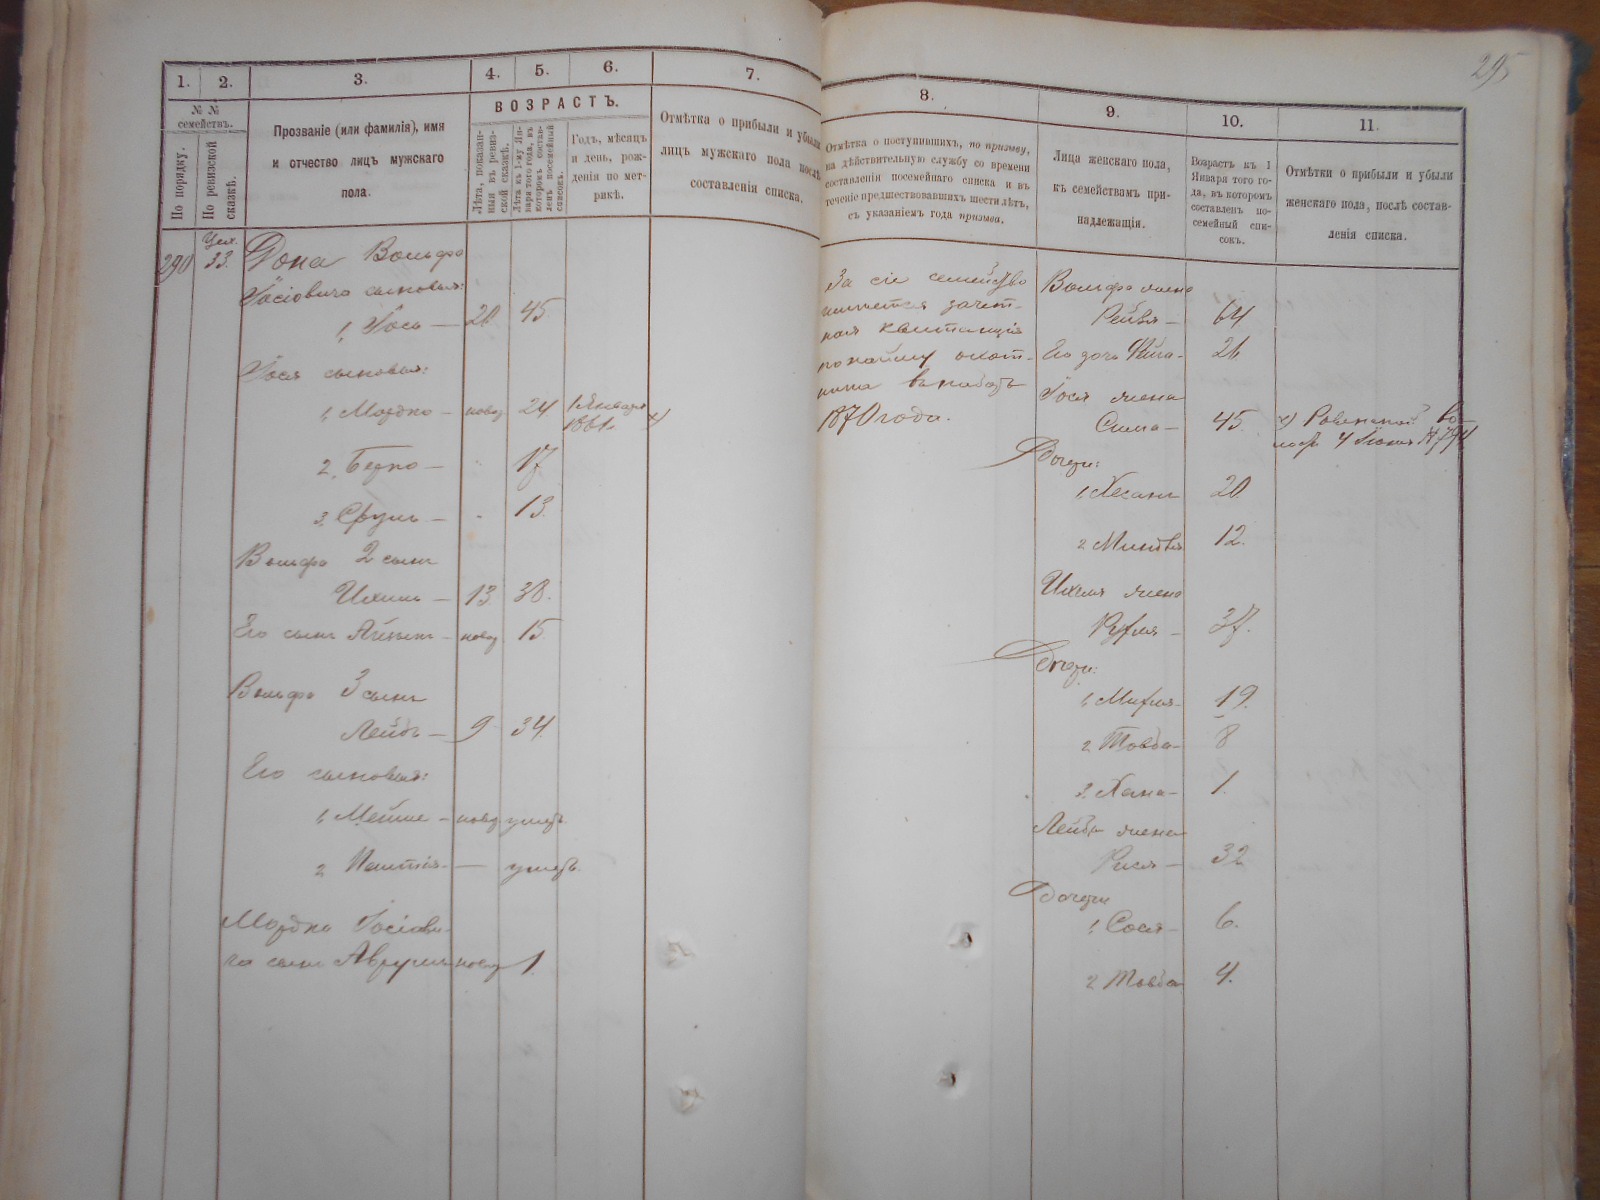 295
1.
2.
3.
4.
5.
6.
7.
№ №
семействъ.
По порядку.
По ревизской
сказкѣ.
Прозваніе (или фамилія), имя
и отчество лицъ мужскаго
пола.
ВОЗРАСТЪ.
Лѣта, показан-
ныя въ ревиз-
ской сказкѣ.
Лѣта къ 1-му Ян-
варя того года, въ
которомъ состав-
ленъ посемейный
списокъ.
Годъ, мѣсяцъ
и день, рож-
денія по мет-
рикѣ.
Отмѣтка о прибыли и убыли
лицъ мужскаго пола послѣ
составленія списка.
290
33.
Дона Вольфа
Іосіовича сыновья:
1, Іось — 20 45
Іося сыновья:
1, Мордко — новор 24 1 Января
1861 г. х)
2, Берко — 17
3, Сруль — 13.
Вольфа 2 сынъ
Ихиль — 13 38.
Его сынъ — новор 15
Вольфа 3 сынъ
Лейба — 9 34
Его сыновья:
1, — новор умеръ
2 — умеръ.
Мордка Іосіови-
ча сынъ Аврумъ новор 1.
8.
9.
10.
11.
Отмѣтка о поступившихъ, по призыву,
на дѣйствительную службу со времени
составленія посемейнаго списка и въ
теченіе предшествовавшихъ шести лѣтъ,
съ указаніемъ года призыва.
Лица женскаго пола,
къ семействамъ при-
надлежащія.
Возрастъ къ 1
Января того го-
да, въ которомъ
составленъ по-
семейный спи-
сокъ.
Отмѣтки о прибыли и убыли
женскаго пола, послѣ состав-
ленія списка.
За сіе семейство
имѣется зачет-
ная квитанція
по найму охот-
ника въ наборъ
1870 года.
Вольфа жена
Рейзя — 64
Его дочь — 26
Іося жена
Сима — 45
Дочери:
1, — 20
2 Миндля 12.
Ихиля жена
Рухля — 37.
Дочери:
1, — 19.
2 Товба — 8
3 Хана — 1.
Лейбы жена
Рися — 32
Дочери
1, Сося — 6.
2 Товба 4.
х) Ровенской во-
4 Іюня № 794